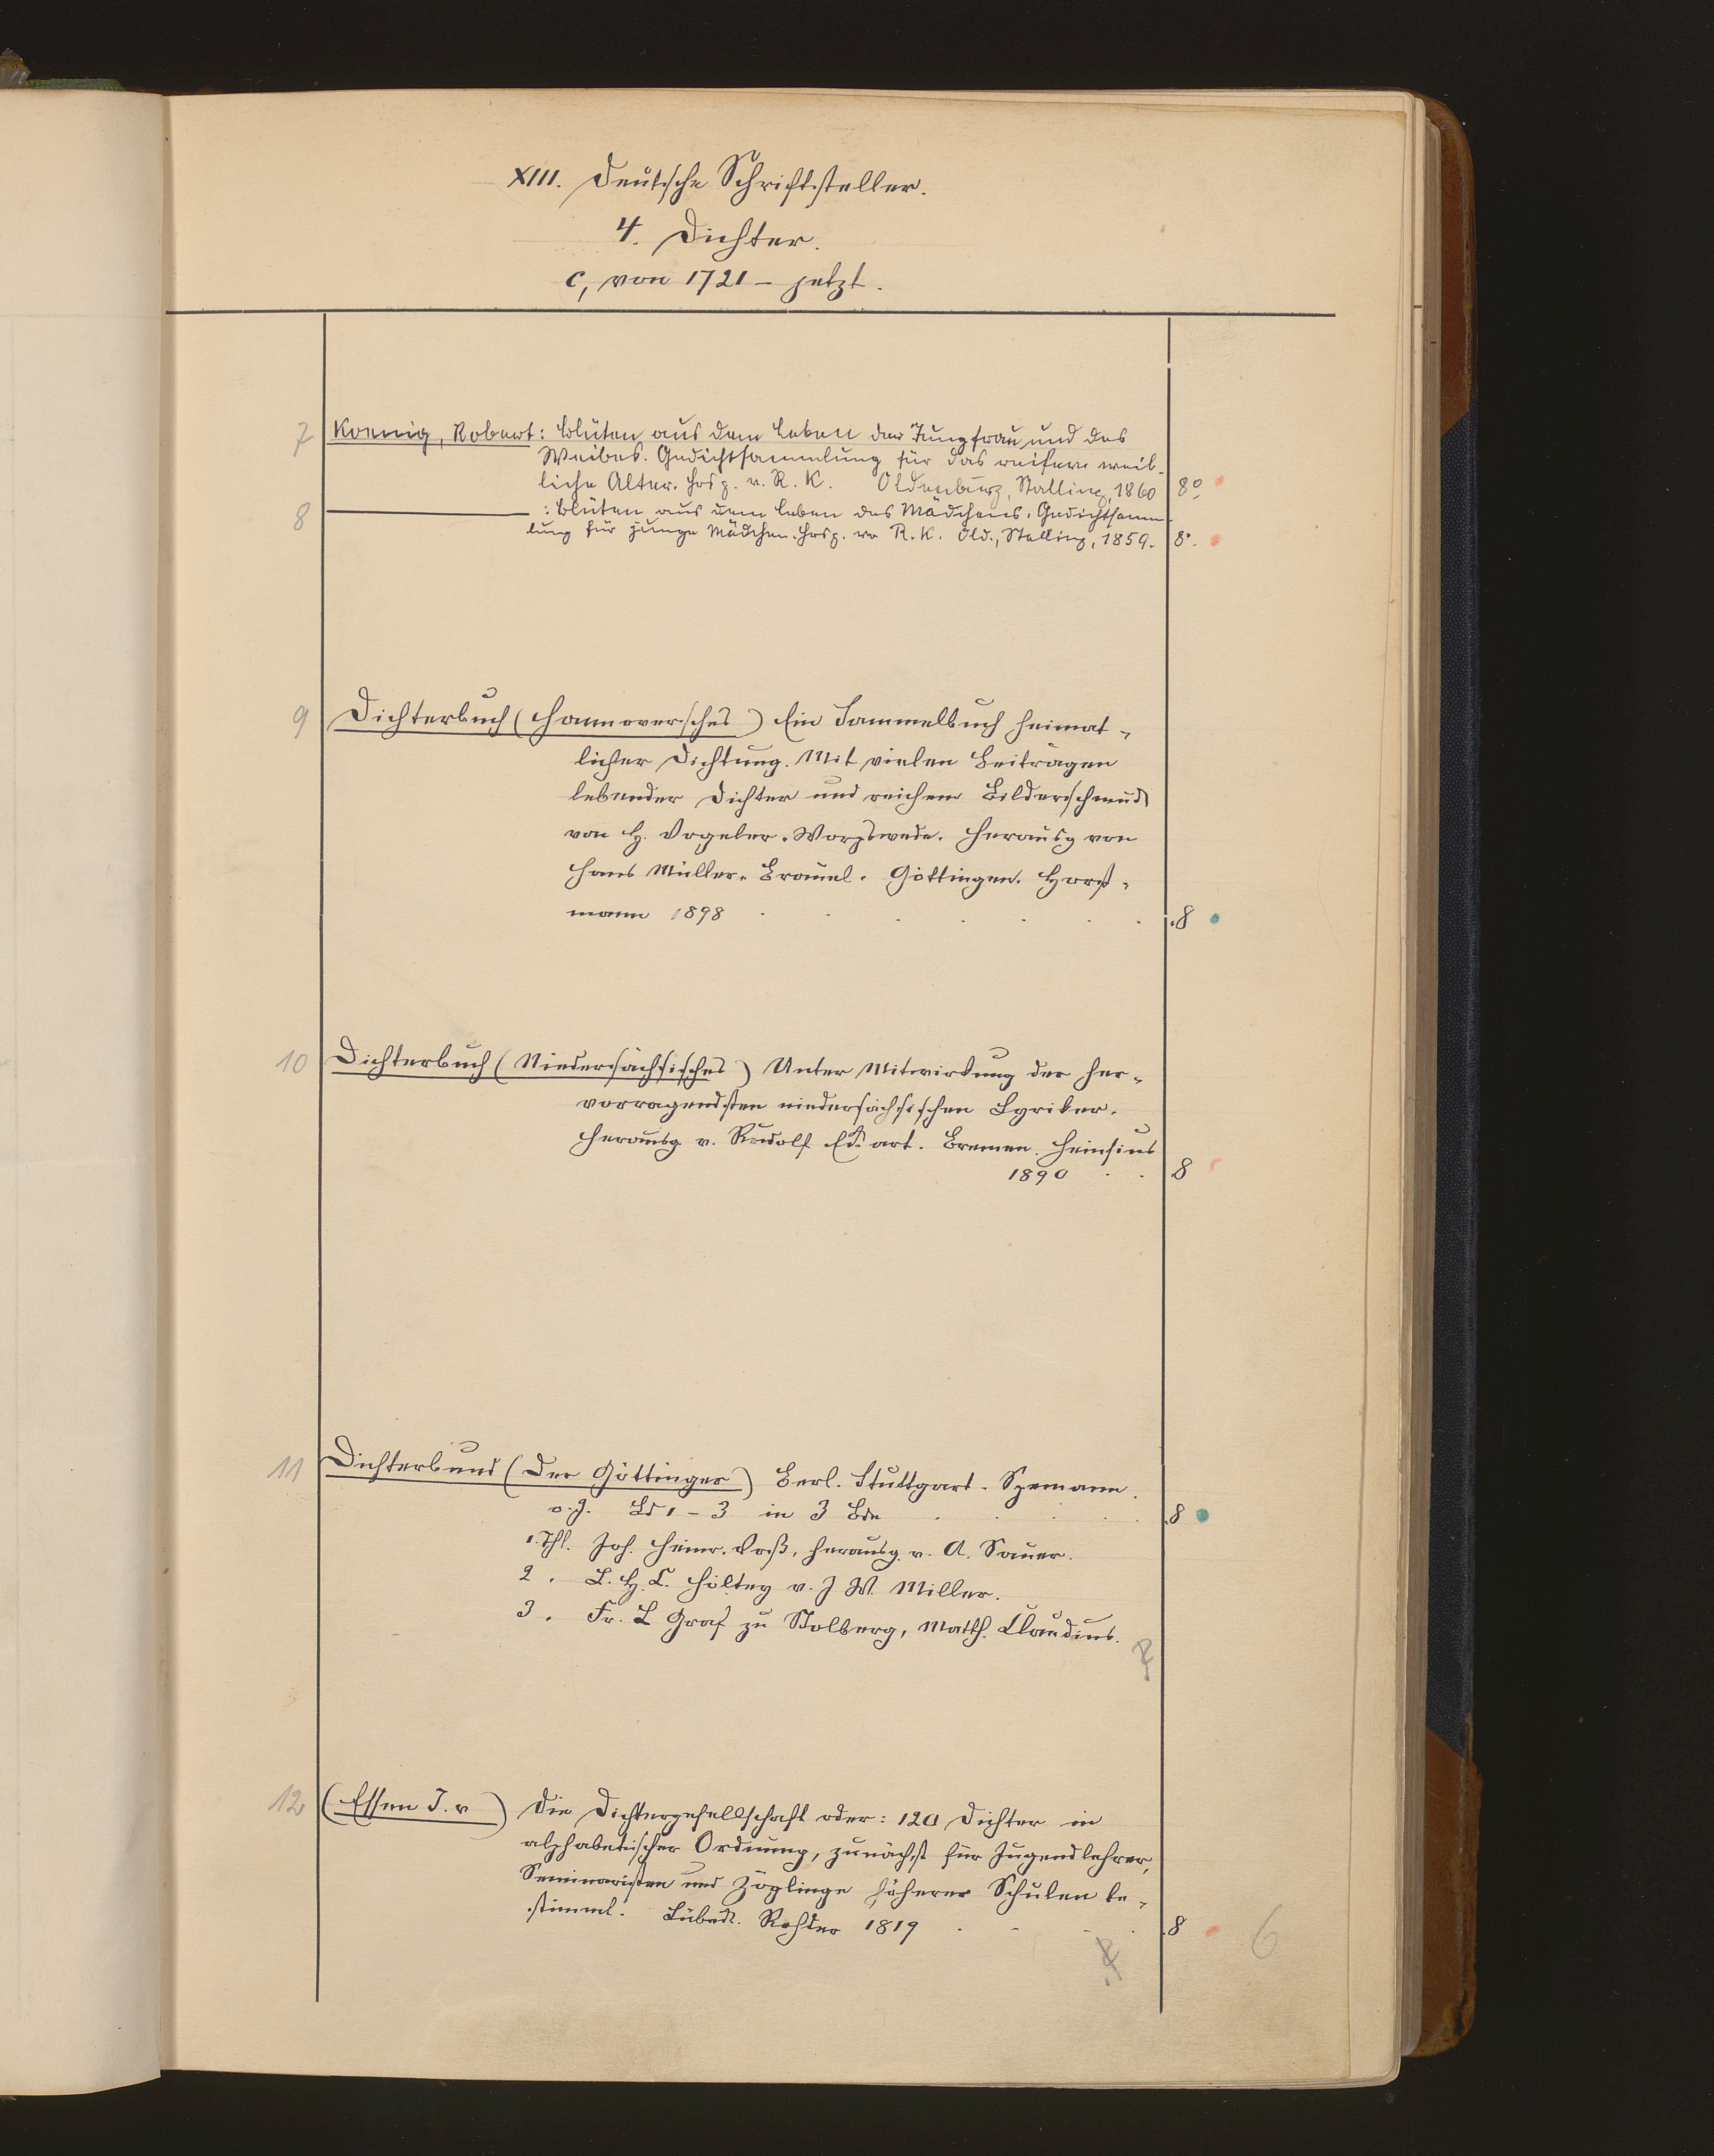 XIII. Deutsche Schriftsteller.
4. Dichter.
c, von 1721 – jetzt.
7 Koenig, Robert: Blüten aus dem Leben der Jungfrau und des
Weibes. Gedichtsammlung für das reifere weib-
liche Alter. Hrsg. v. R. K. Oldenburg, Stalling, 1860 8°
8 ———— : Blüten aus dem Leben des Mädchens. Gedichtsamm-
lung für junge Mädchen. Hrsg. von R. K. Old., Stalling, 1859. 8°.
9 Dichterbuch (Hannoversches) Ein Sammelbuch heimat-
licher Dichtung. Mit vielen Beiträgen
lebender Dichter und reichem Bilderschmuck
von H. Vogeler-Worpswede. Herausg von
Hans Müller-Brauel. Göttingen. Horst-
mann 1898 . . . . . . . 8
10 Dichterbuch (Niedersächsisches) Unter Mitwirkung der her-
vorragendsten niedersächsischen Lyriker.
Herausg v. Rudolf Eckart. Bremen. Heinsius
1890 . . 8
11 Dichterbund (Der Göttinger) Berl. Stuttgart. Spemann.
o. J. Bd 1 – 3 in 3 Bdn . . . . 8
1. Thl. Joh. Heinr. Voß, herausg. v. A. Sauer.
2. L. H. C. Höltey v. J W. Miller.
3. Fr. L Graf zu Stolberg, Matth. Claudius.
12 (Essen J. v) Die Dichtergesellschaft oder: 120 Dichter in
alphabetischer Ordnung, zunächst für Jugendlehrer,
Seminaristen und Zöglinge höherer Schulen be-
stimmt. Lübeck. Rohden 1819 . . . . 8
6